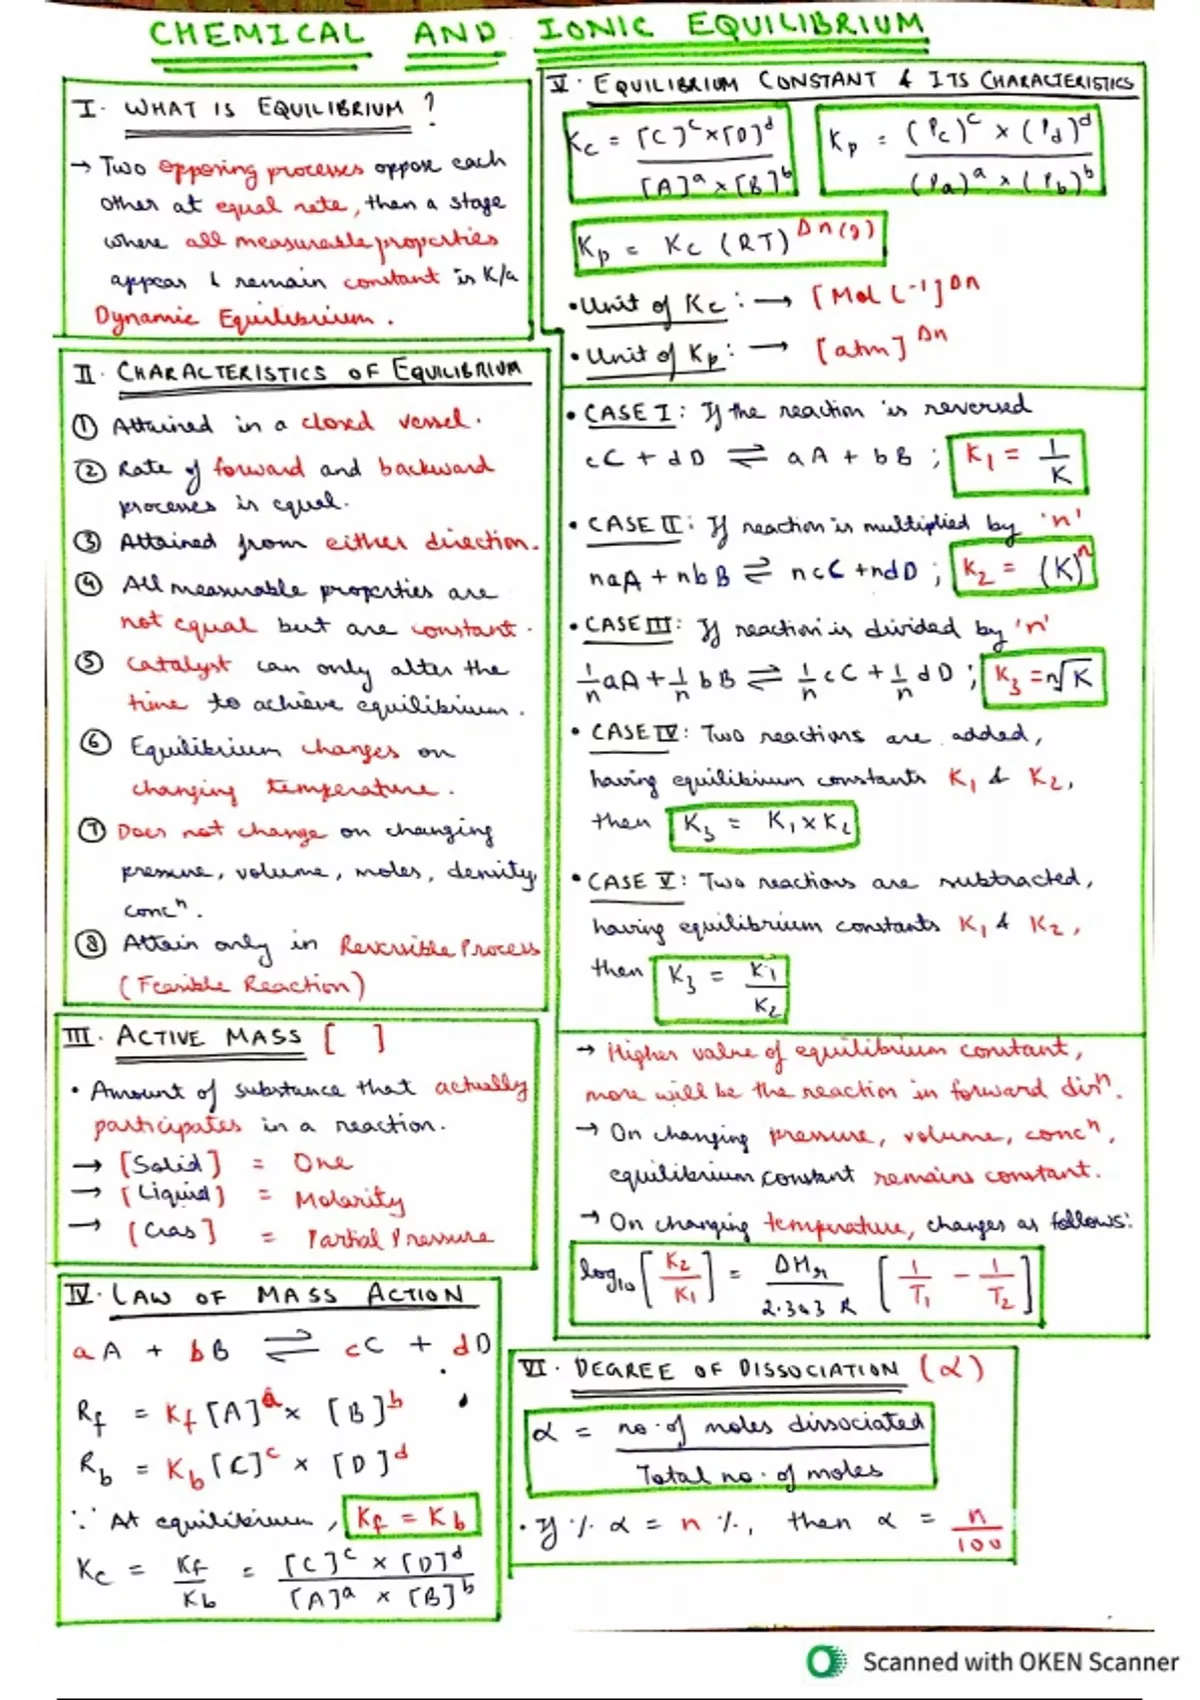 CHEMICAL AND IONIC EQUILIBRIUM
I. WHAT IS EQUILIBRIUM ?
→ Two opposing processes oppose each
other at equal rate, then a stage
where all measurable properties
appear & remain constant is K/a
Dynamic Equilibrium.
II. CHARACTERISTICS OF EQUILIBRIUM
① Attained in a closed vessel.
② Rate of forward and backward
processes is equal.
③ Attained from either direction.
④ All measurable properties are
not equal but are constant.
⑤ Catalyst can only alter the
time to achieve equilibrium.
⑥ Equilibrium changes on
changing temperature.
⑦ Does not change on changing
pressure, volume, moles, density,
concⁿ.
⑧ Attain only in Reversible Process
(Feasible Reaction)
III. ACTIVE MASS [ ]
• Amount of substance that actually
participates in a reaction.
→ [Solid] = One
→ [Liquid] = Molarity
→ [Gas] = Partial Pressure
IV. LAW OF MASS ACTION
aA + bB ⇌ cC + dD
R_f = K_f [A]^a × [B]^b
R_b = K_b [C]^c × [D]^d
∵ At equilibrium, K_f = K_b
K_c = K_f / K_b = [C]^c × [D]^d / [A]^a × [B]^b
V. EQUILIBRIUM CONSTANT & ITS CHARACTERISTICS
K_c = [C]^c × [D]^d / [A]^a × [B]^b
K_p = (P_c)^c × (P_d)^d / (P_a)^a × (P_b)^b
K_p = K_c (RT)^Δn(g)
• Unit of K_c : → [Mol L^-1]^Δn
• Unit of K_p : → [atm]^Δn
• CASE I : If the reaction is reversed
cC + dD ⇌ aA + bB ; K_1 = 1/K
• CASE II : If reaction is multiplied by 'n'
naA + nbB ⇌ ncC + ndD ; K_2 = (K)^n
• CASE III : If reaction is divided by 'n'
1/n aA + 1/n bB ⇌ 1/n cC + 1/n dD ; K_3 = n√K
• CASE IV : Two reactions are added,
having equilibrium constants K_1 & K_2,
then K_3 = K_1 × K_2
• CASE V : Two reactions are subtracted,
having equilibrium constants K_1 & K_2,
then K_3 = K_1 / K_2
→ Higher value of equilibrium constant,
more will be the reaction in forward dirⁿ.
→ On changing pressure, volume, concⁿ,
equilibrium constant remains constant.
→ On changing temperature, changes as follows:
log_10 [K_2 / K_1] = ΔH_r / 2.303 R [1/T_1 - 1/T_2]
VI. DEGREE OF DISSOCIATION (α)
α = no. of moles dissociated / Total no. of moles
• If % α = n %, then α = n/100
Scanned with OKEN Scanner